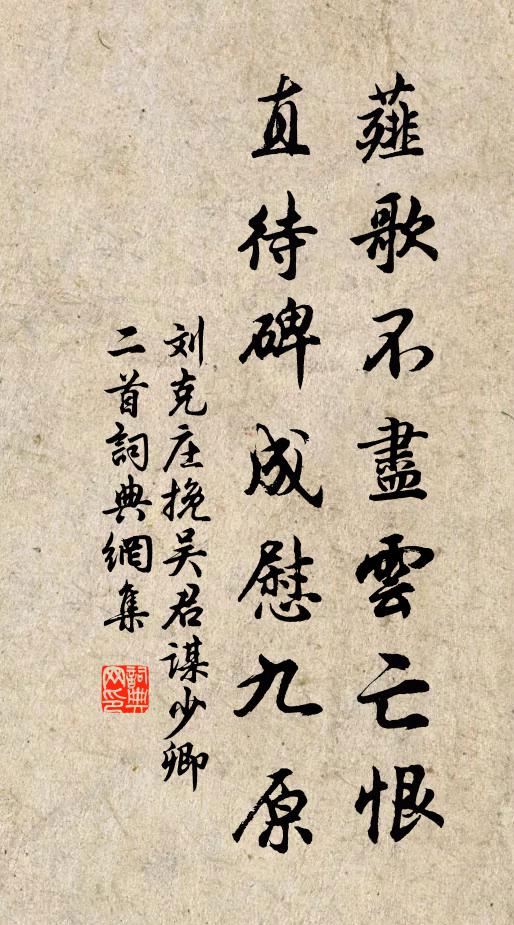 薤歌不盡雲亡恨
直待碑成慰九原
刘克庄挽吴君谋少卿
二首詞典網集
詞典
网印